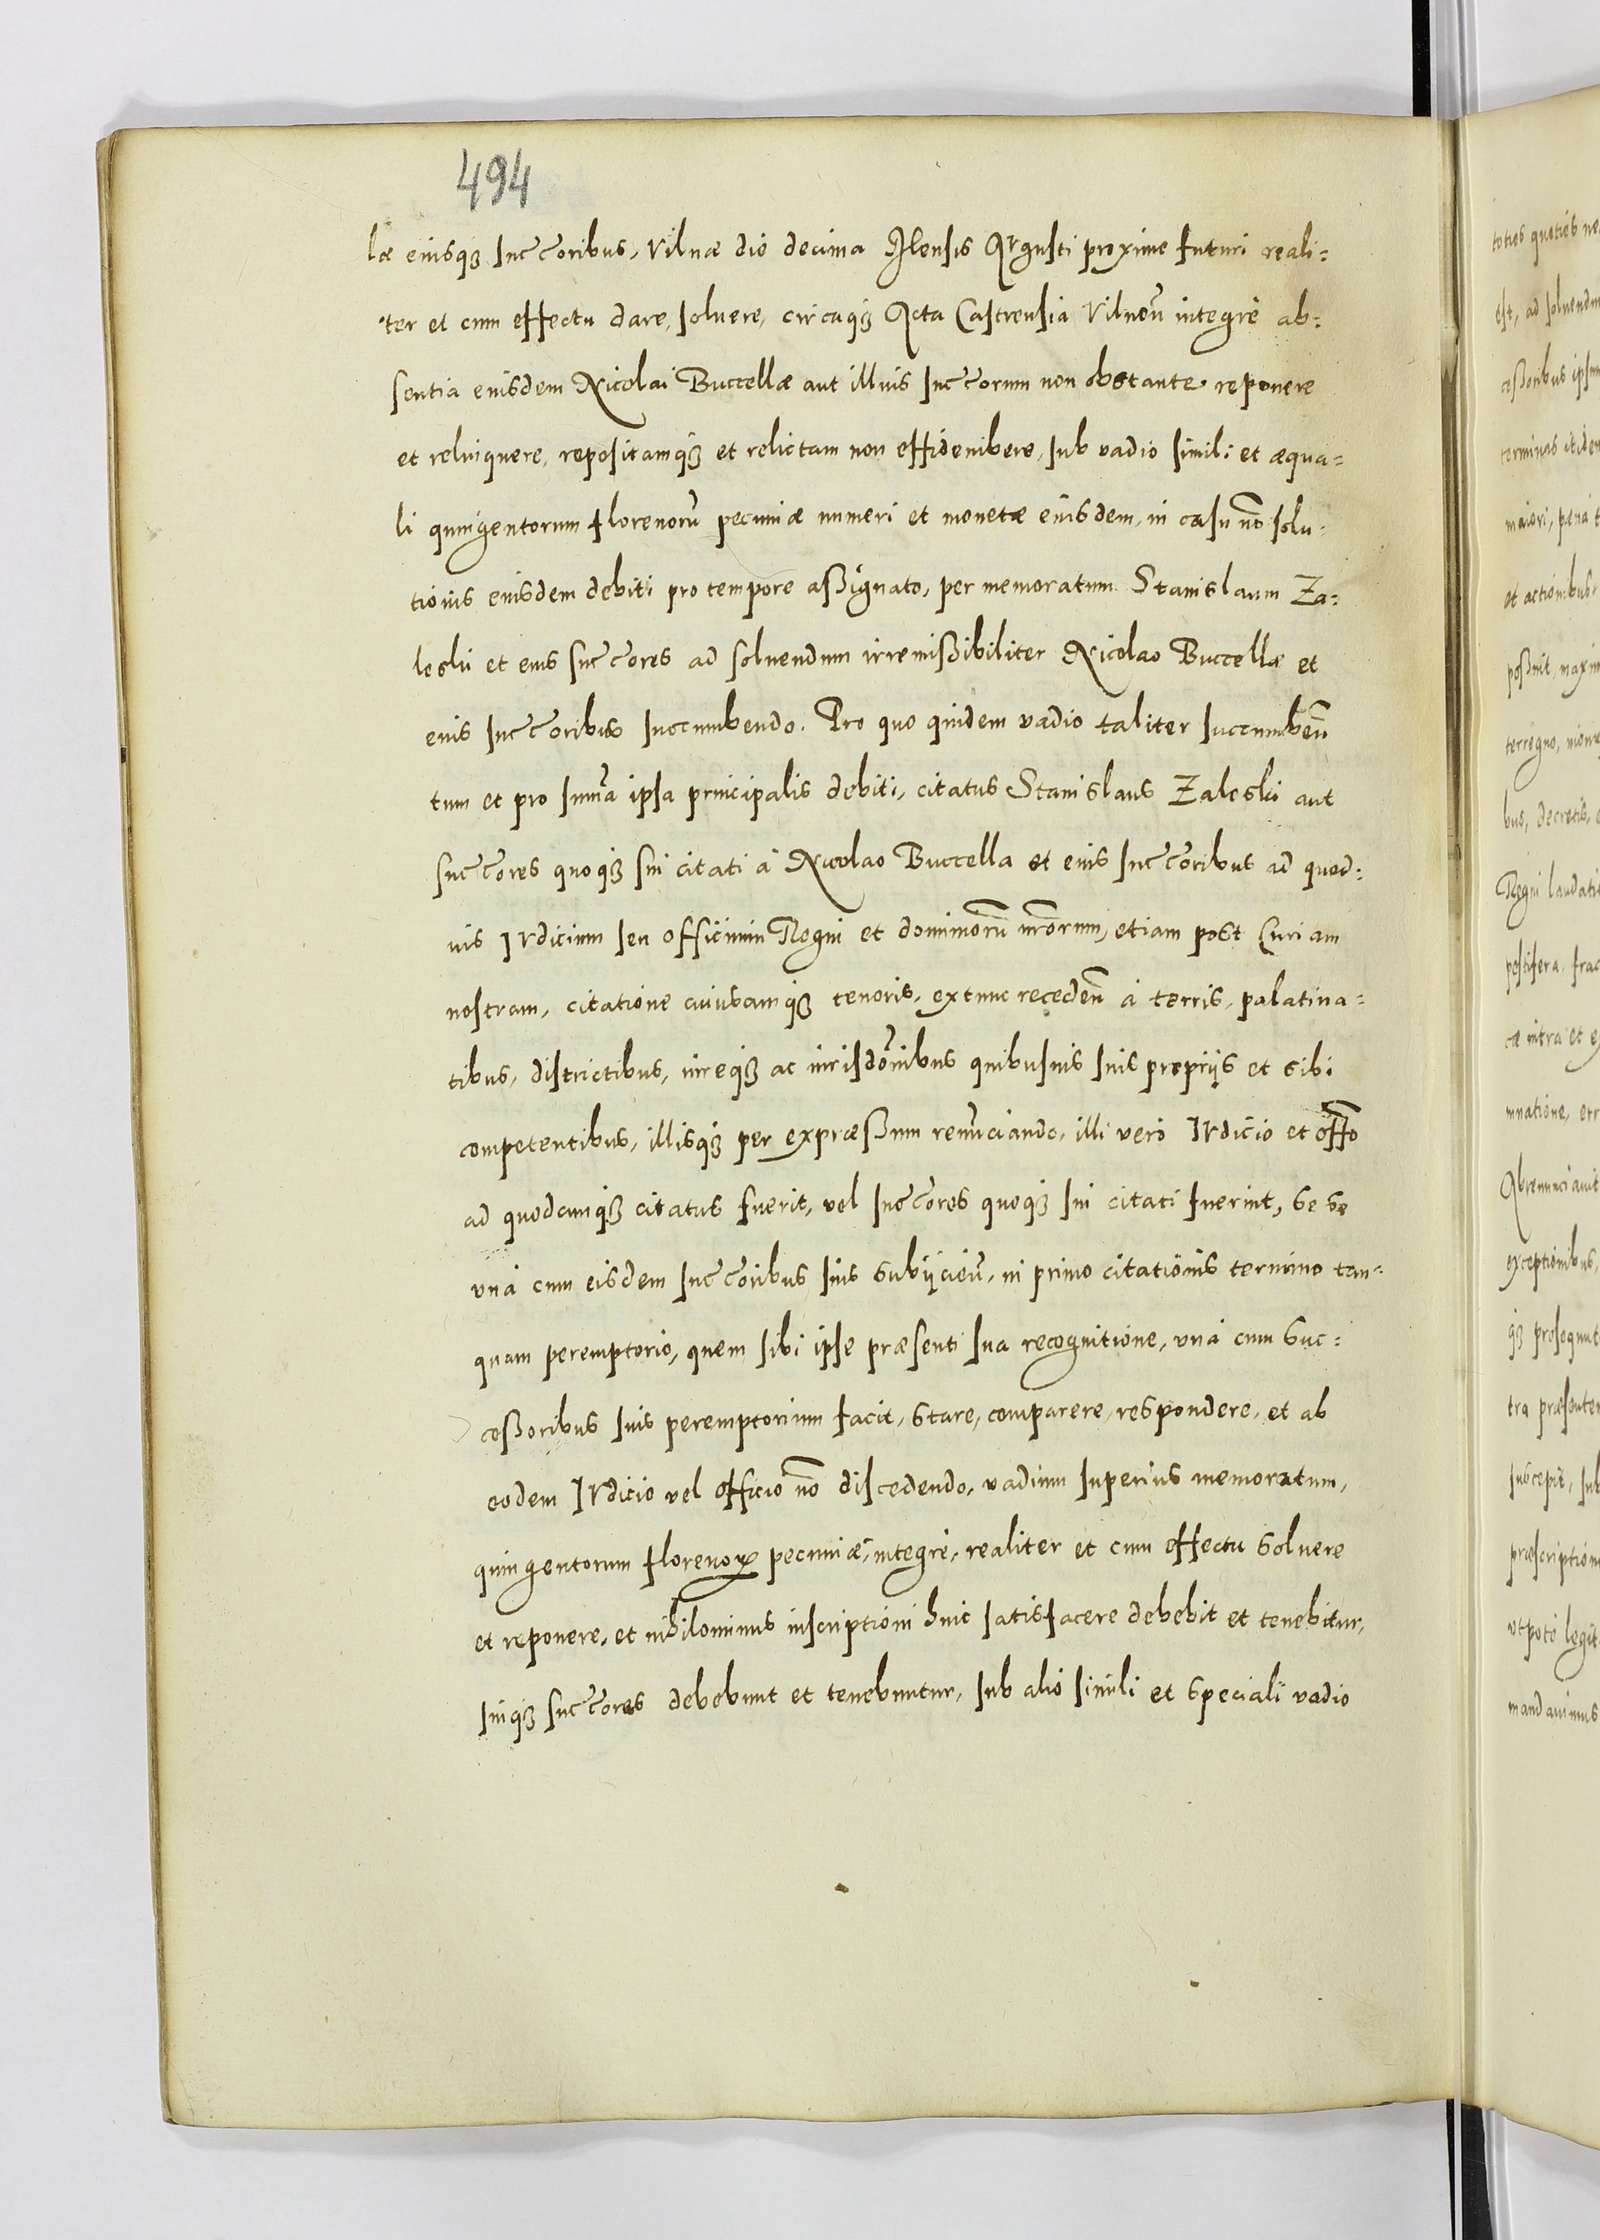 494
læ eiusq3 succ̃oribus, Vilnæ die decima Mensis Augusti proxime futuri reali=
ter et cum effectu dare, soluere, circaq3 Acta Castrensia Vilneñ integrè ab=
sentia eiusdem Nicolai Buccellæ aut illius succ̃orum non obstante reponere
et relinquere, repositamq3 et relictam non
sub vadio simili et æqua=
li quingentorum florenorũ pecuniæ numeri et monetæ eiusdem, in casu nõ solu-
tionis eiusdem debiti pro tempore assignato, per memoratum Stanislaum Za=
leski et eius succ̃ores ad soluendum irremissibiliter Nicolao Buccellæ et
eius succ̃oribus succumbendo. Pro quo quidem vadio taliter succumbeñ
tum et pro sum̃a ipsa principalis debiti, citatus Stanislaus Zaleski aut
succ̃ores quoq3 sui citati à Nicolao Buccella et eius succ̃oribus ad quod=
uis Iudicium seu officium Regni et dominiorũ nr̃orum, etiam post Curiam
nostram, citatione cuiuscumq3 tenoris, extunc recedeñ à terris, palatina=
tibus, districtibus, iureq3 ac iurisdõnibus quibusuis suis proprijs et sibi
competentibus, illisq3 per expræssum renũciando, illi verò Iudicio et off̃o
ad quodcumq3 citatus fuerit, vel succ̃ores quoq3 sui citati fuerint, se se
vnà cum eisdem succ̃oribus suis subijcieñ, in primo citationis termino tan=
quam peremptorio, quem sibi ipse præsenti sua recognitione, vnà cum suc=
cessoribus suis peremptorium facit, stare, comparere, respondere, et ab
eodem Iudicio vel officio nõ discedendo, vadium superius memoratum,
quingentorum florenoꝝ pecuniæ, integrè, realiter et cum effectu soluere
et reponere, et nihilominus inscriptioni huic satisfacere debebit et tenebitur,
suiq3 succ̃ores debebunt et tenebuntur, sub alio simili et speciali vadio
toties quoties
est, ad soluendum
cessoribus
terminus
maiori, pena
et actionibus
possint,
terregno,
bus, decretis,
Regni
pestifera,
intra et
Abrenunciavit
exceptionibus,
tra
suscepit, sub
vtpote
mandauimus